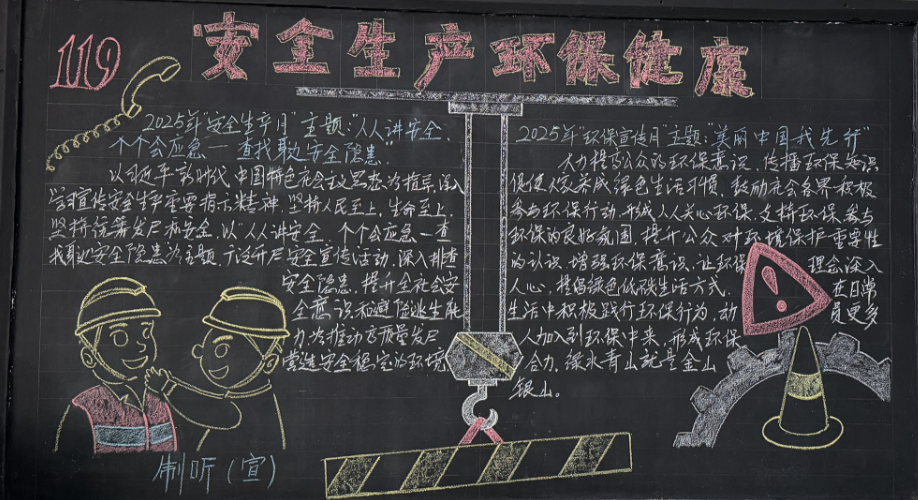 119
安全生产环保健康
2025年“安全生产月”主题：“人人讲安全、
个个会应急——查找身边安全隐患”
以习近平新时代中国特色社会主义思想为指导，深入
学习宣传安全生产重要指示精神，坚持人民至上，生命至上，
坚持统筹发展和安全，以“人人讲安全、个个会应急——查
找身边安全隐患”为主题，广泛开展安全宣传活动，深入排查
安全隐患，提升全社会安
全意识和避险逃生能
力，为推动高质量发展
营造安全稳定的环境
2025年“环保宣传月”主题：“美丽中国我先行”
大力提高公众的环保意识，传播环保知识
促使人家养成绿色生活习惯，鼓励社会各界积极
参与环保行动，形成人人关心环保、支持环保、参与
环保的良好氛围，提升公众对环境保护重要性
的认识，增强环保意识，让环保理念深入
人心，提倡绿色低碳生活方式，在日常
生活中积极践行环保行为，动员更多
人加入到环保中来，形成环保
合力，绿水青山就是金山
银山。
制听（宣）